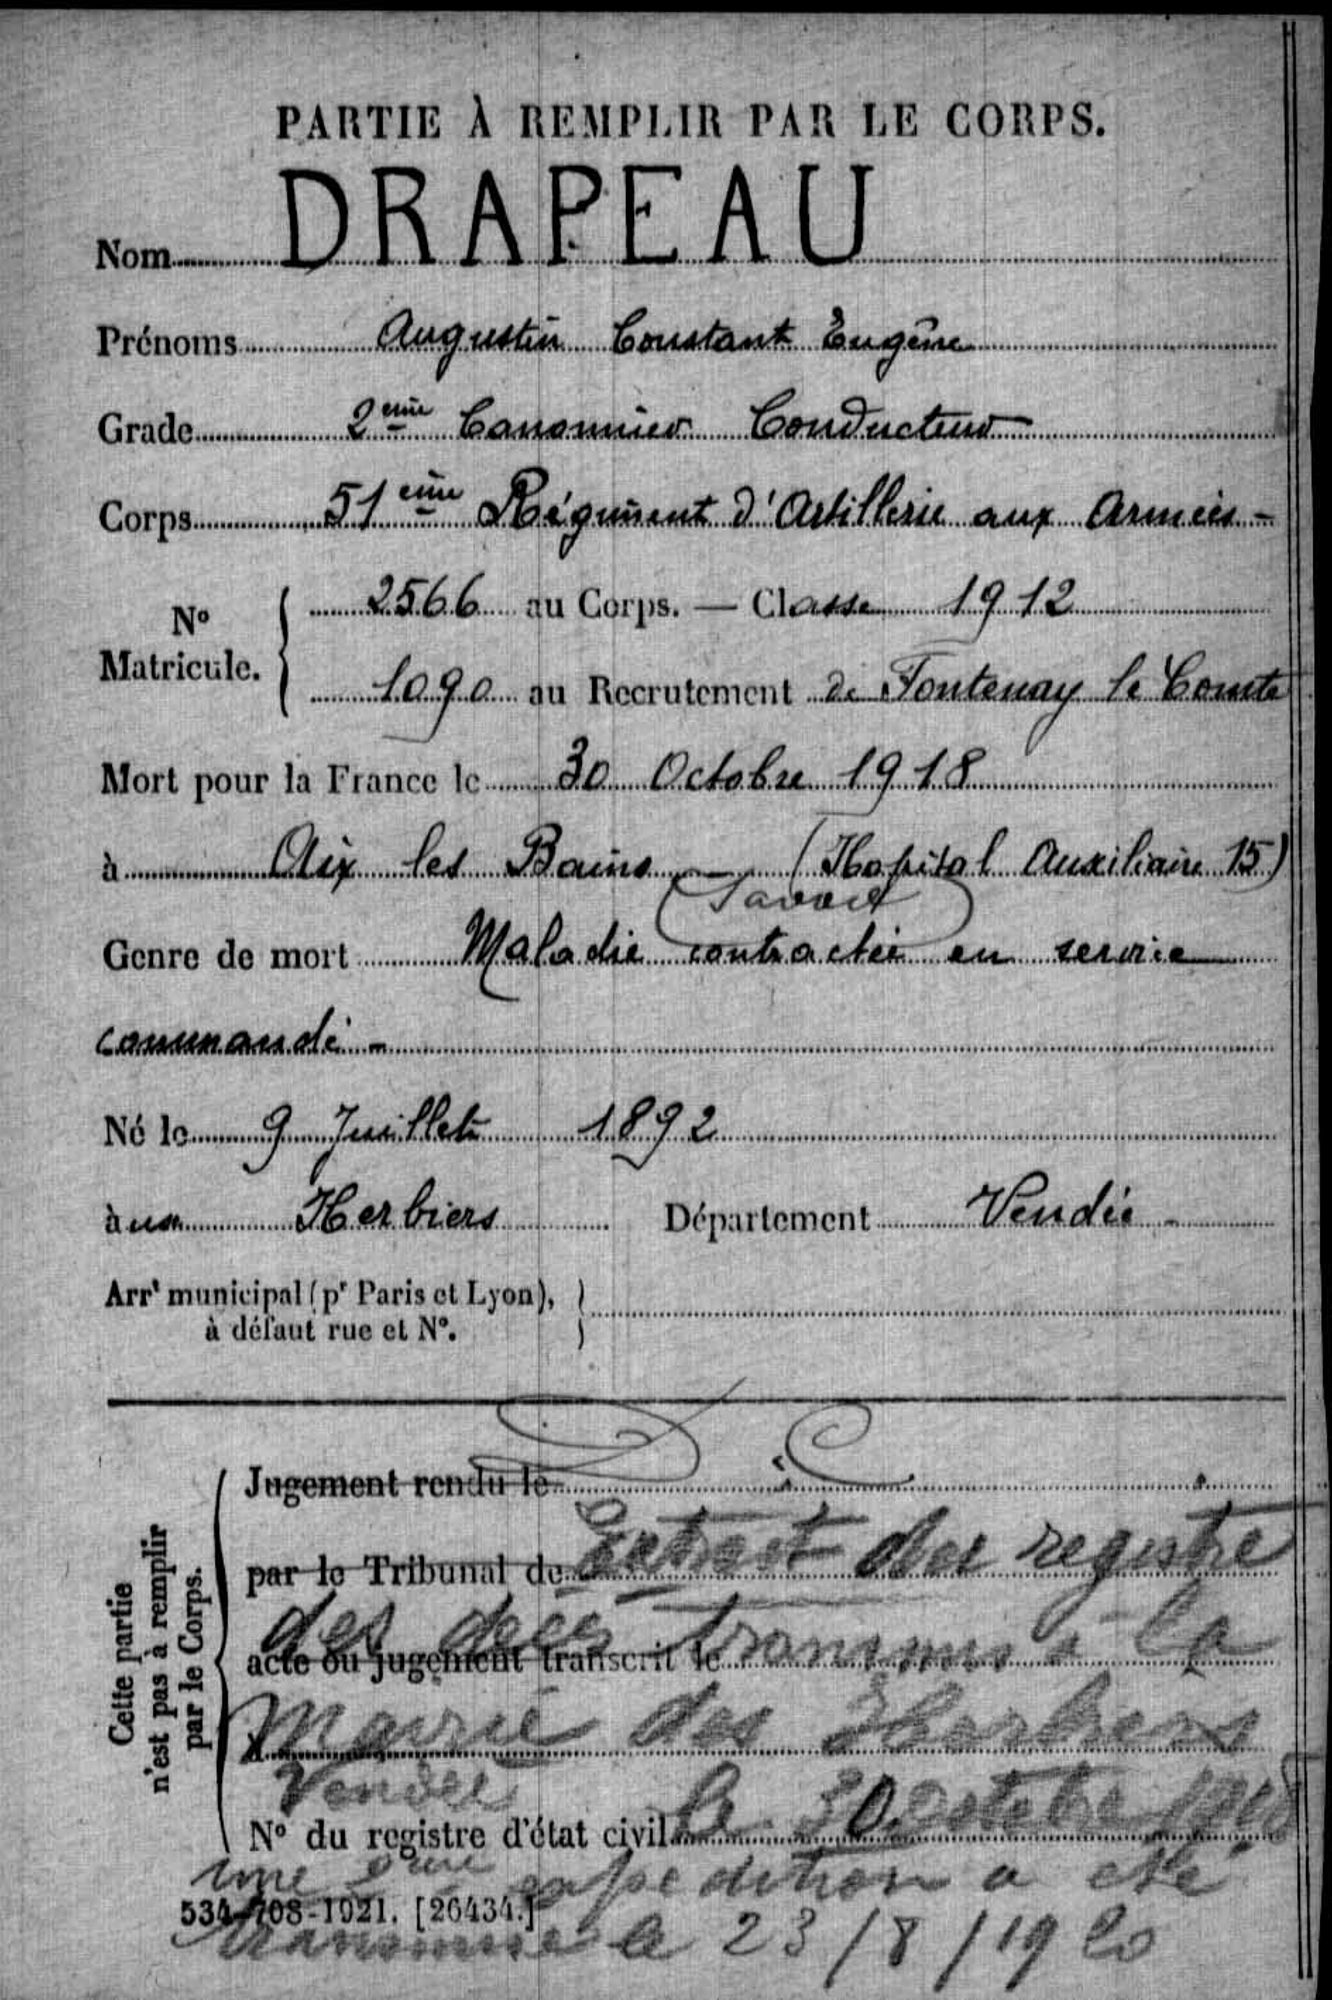 PARTIE À REMPLIR PAR LE CORPS.
Nom DRAPEAU
Prénoms Augustin Constant Eugène
Grade 2eme Canonnier Conducteur
Corps 51eme Régiment d'Artillerie aux Armées -
N° Matricule. 2566 au Corps. — Classe 1912
1090 au Recrutement de Fontenay le Comte
Mort pour la France le 30 Octobre 1918
à Aix les Bains (Hopital Auxiliaire 15)
(Savoie)
Genre de mort Maladie contractée en service
commandé -
Né le 9 Juillet 1892
à aux Herbiers Département Vendée -
Arrt municipal (pr Paris et Lyon),
à défaut rue et N°.
Cette partie
n'est pas à remplir
par le Corps.
D. C.
Jugement rendu le
par le Tribunal de Extrait des registre
des deces transmis à la
acte ou jugement transcrit le
à Mairie des Herbiers
Vendée le 30 octobre 1918
N° du registre d'état civil
Une 2eme expedition a été
534-708-1921. [26434.]
transmise le 23/8/1920